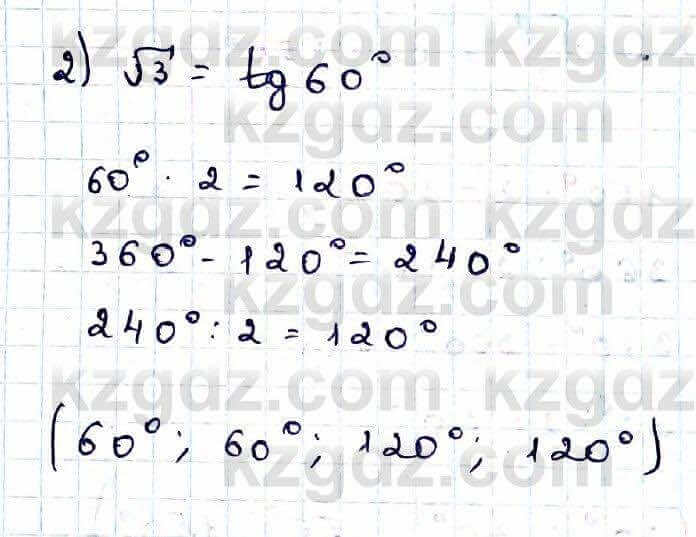 2) √3 = tg 60°
60° · 2 = 120°
360° - 120° = 240°
240° : 2 = 120°
(60°; 60°; 120°; 120°)
kzgdz.com kzgdz
kzgdz.com
kzgdz.com kzgdz
kzgdz.com
kzgdz.com kzgdz
kzgdz.com